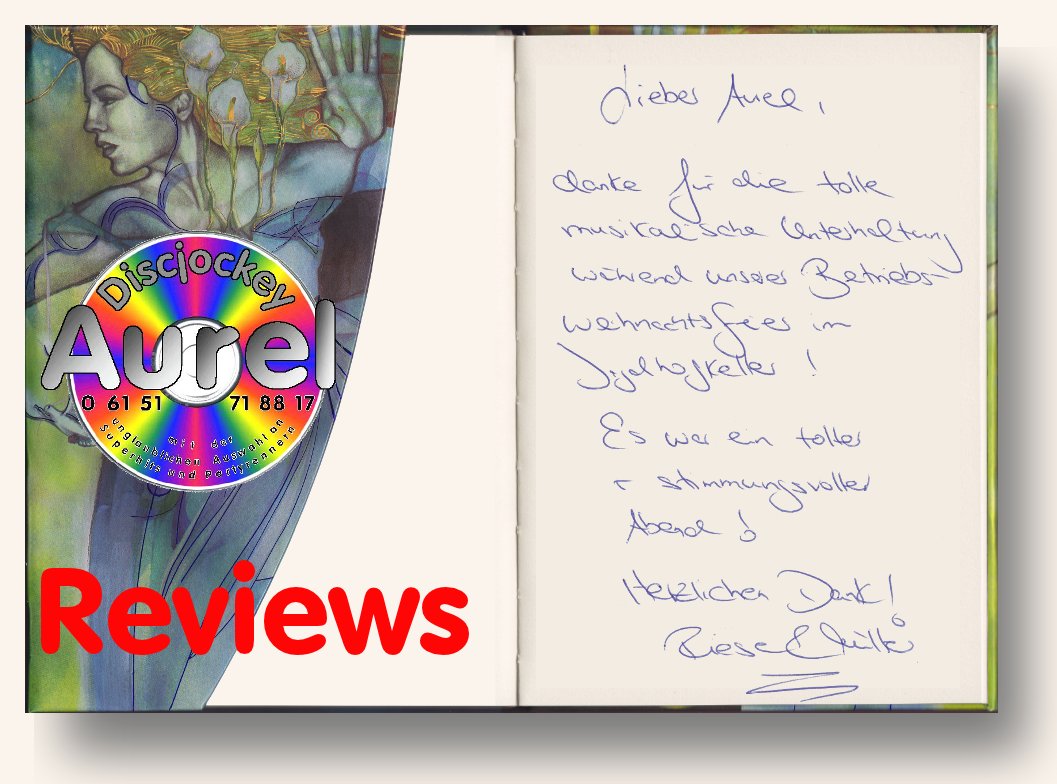 Discjockey
Aurel
0 61 51 71 88 17
mit der
unglaublichen Auswahl an
Superhits und Partyrennern
Reviews
Lieber Aurel,
danke für die tolle
musikalische Unterhaltung
während unserer Betriebs-
weihnachtsfeier im
Jagdhofkeller!
Es war ein toller
+ stimmungsvoller
Abend!
Herzlichen Dank!